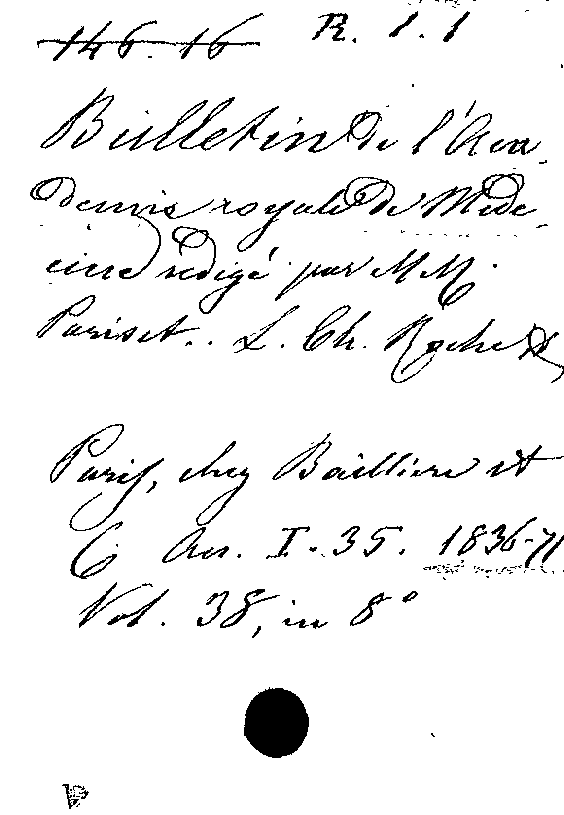 146.16 R. 1.1
Bulletin de l'Aca-
demie royale de Méde-
cine rédigé par MM.
Pariset.. L. Ch. Roche &
Paris, chez Baillière et
C An. I-35. 1836-71
Vol. 38, in 8°